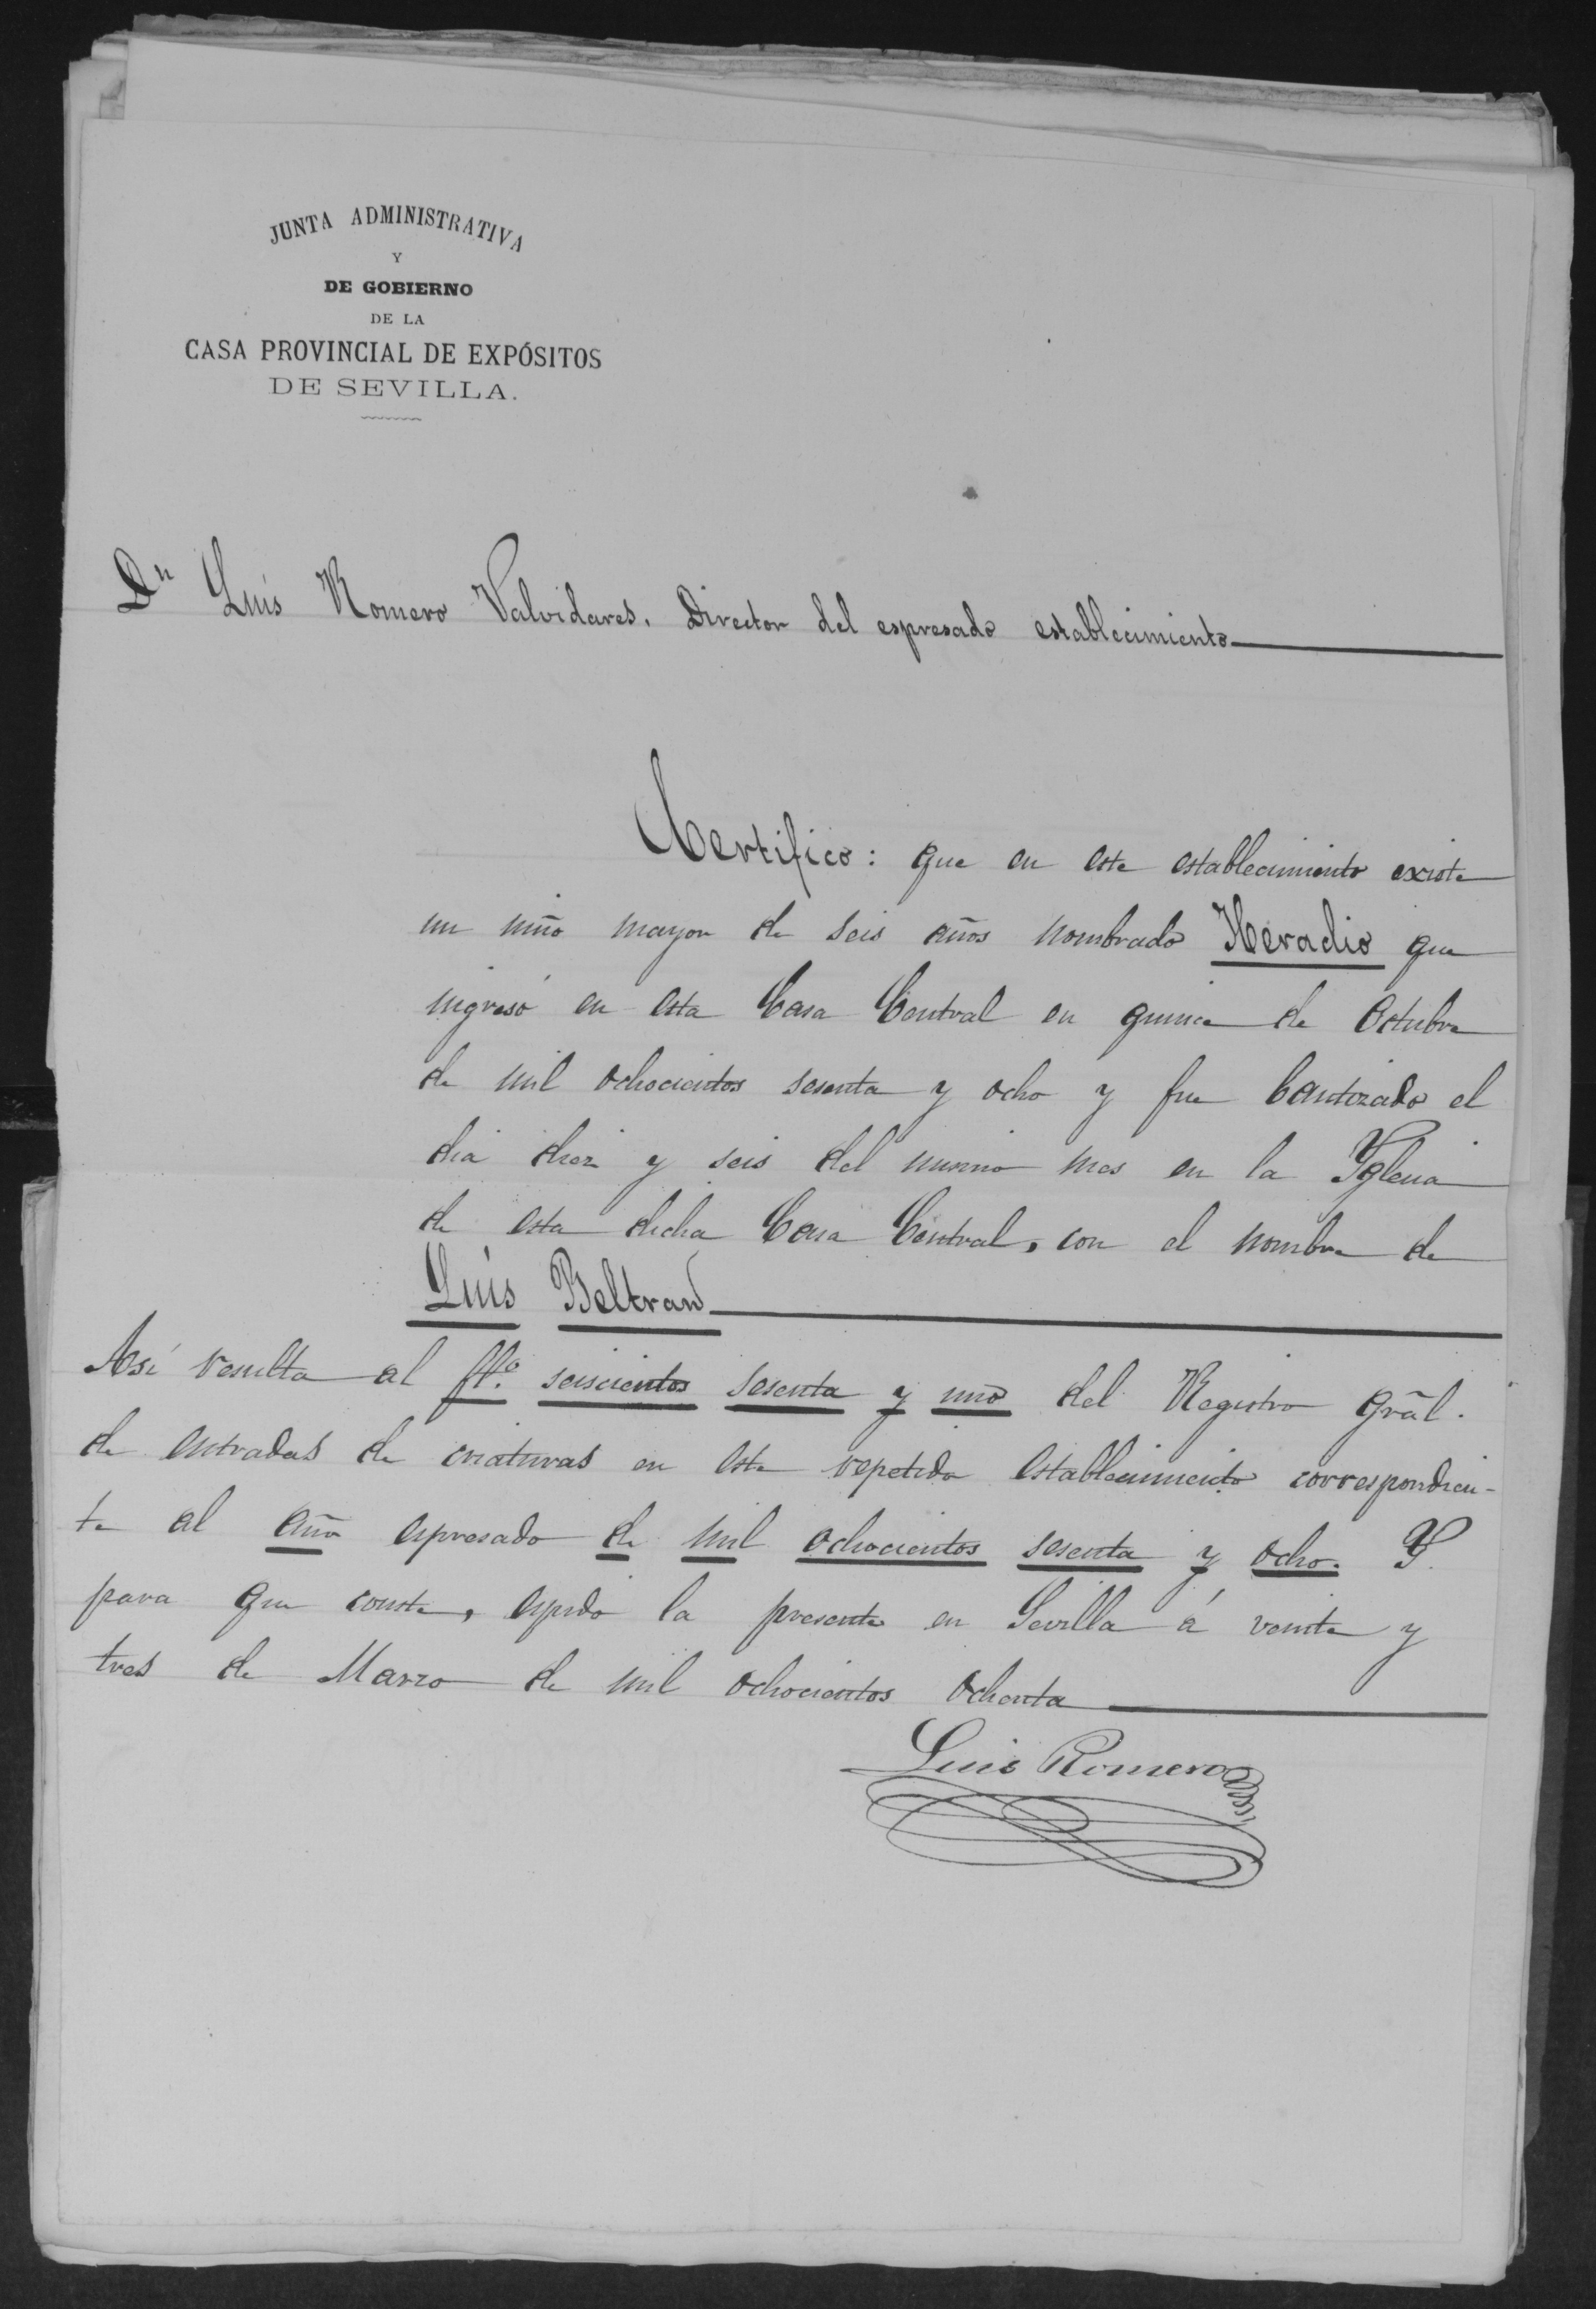 JUNTA ADMINISTRATIVA
Y
DE GOBIERNO
DE LA
CASA PROVINCIAL DE EXPÓSITOS
DE SEVILLA.
Dn Luis Romero Valvidares. Director del espresado establecimiento
Certifico: que en este establecimiento existe
un niño mayor de seis años nombrado Heradio que
ingresó en esta Casa Central en quince de Octubre
de mil ochocientos sesenta y ocho y fue bautizado el
dia diez y seis del mismo mes en la Yglesia
de esta dicha Casa Central, con el nombre de
Luis Beltran
Asi resulta al flº seiscientos sesenta y uno del Registro grãl.
de entradas de criaturas en este repetido establecimiento correspondien-
te al año espresado de mil ochocientos sesenta y ocho. Y
para que conste, espido la presente en Sevilla á veinte y
tres de Marzo de mil ochocientos ochenta
Luis Romero